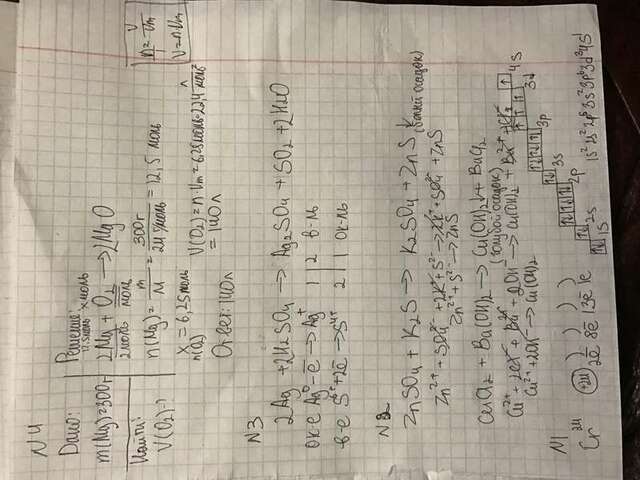 N4
Дано:
m(Mg)=300г
Найти:
V(O₂)-?
Решение:
12,5моль x моль
2Mg + O₂ → 2MgO
2моль моль
n(Mg) = m/M = 300г / 24г/моль = 12,5 моль
X = 6,25моль
n(O₂)
V(O₂)=n·Vm=6,25моль·22,4 = 140л
Ответ: 140л
n = V/Vm
V=n·Vm
N3
2Ag + 2H₂SO₄ → Ag₂SO₄ + SO₂ + 2H₂O
ок-е Ag⁰ - e̅ → Ag⁺ | 1 | 2 в-ль
в-е S⁶⁺ + 2e̅ → S⁴⁺ | 2 | 1 ок-ль
N2
ZnSO₄ + K₂S → K₂SO₄ + ZnS↓ (белый осадок)
Zn²⁺ + SO₄²⁻ + 2K⁺ + S²⁻ → 2K⁺ + SO₄²⁻ + ZnS
Zn²⁺ + S²⁻ → ZnS
CuCl₂ + Ba(OH)₂ → Cu(OH)₂↓ + BaCl₂
(голубой осадок)
Cu²⁺ + 2Cl⁻ + Ba²⁺ + 2OH⁻ → Cu(OH)₂ + Ba²⁺ + 2Cl⁻
Cu²⁺ + 2OH⁻ → Cu(OH)₂
N1
Cr ²⁴ +24 ) ) ) )
2e̅ 8e̅ 13e̅ 1e̅
1s 2s 2p 3s 3p 3d 4s
1s²2s²2p⁶3s²3p⁶3d⁵4s¹